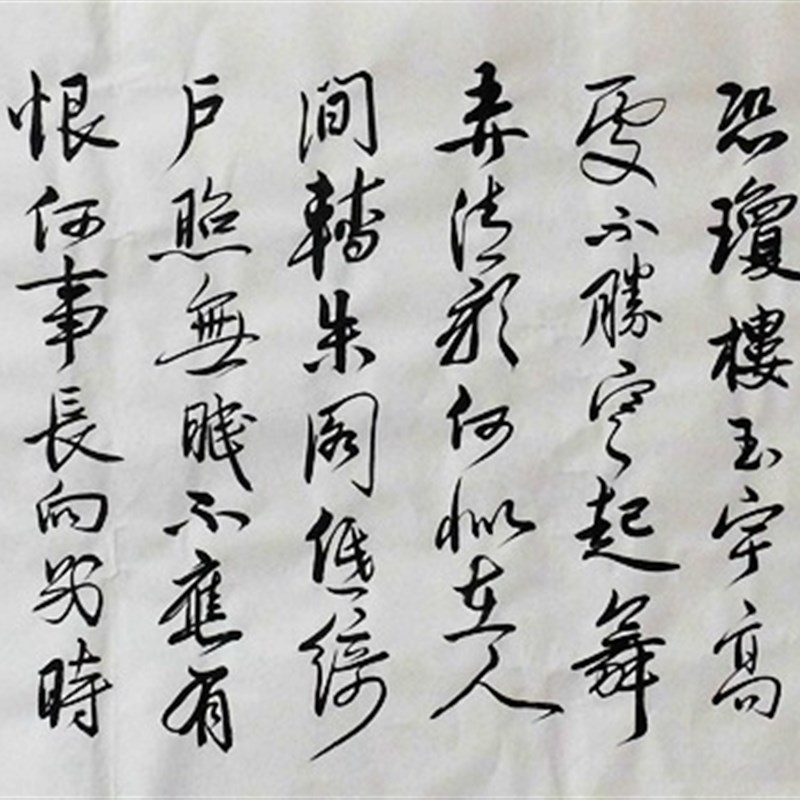 恐瓊樓玉宇高
處不勝寒起舞
弄清影何似在人
間轉朱閣低綺
户照無眠不應有
恨何事長向別時